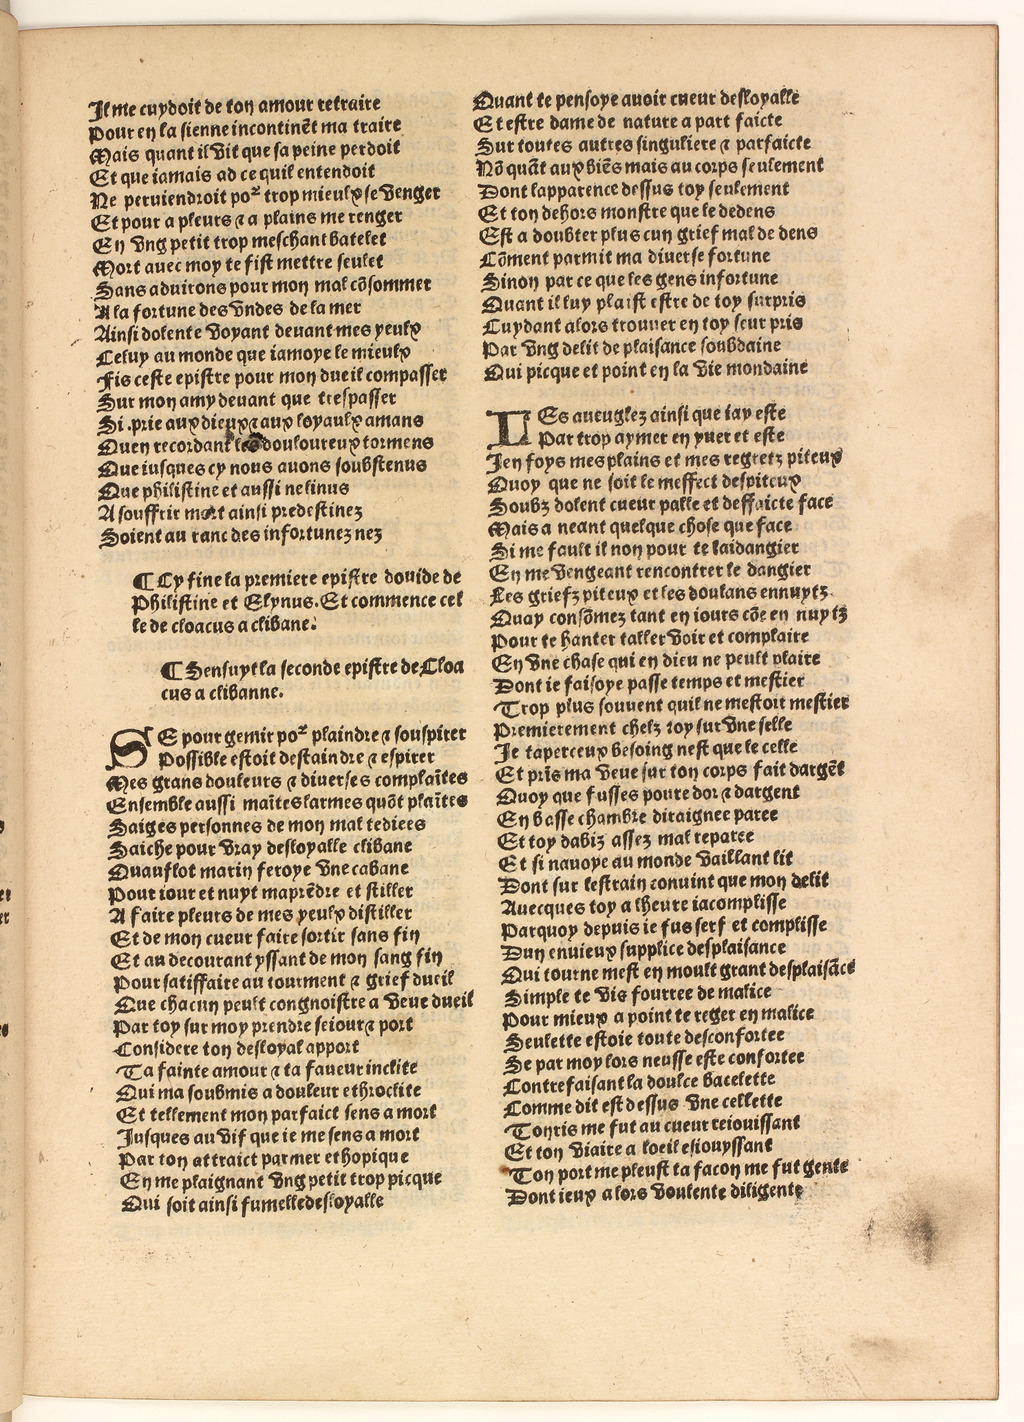 Il me cuydoit de ton amour retraire
Pour en la sienne incontinẽt ma traire
Mais quant il vit que sa peine perdoit
Et que iamais ad ce quil entendoit
Ne peruiendroit poᷣ trop mieulx se venger
Et pour a pleurs ⁊ a plains me renger
En vng petit trop meschant batelet
Mort auec moy te fist mettre seulet
Sans aduirons pour mon mal cõsommer
A la fortune des vndes de la mer
Ainsi dolente voyant deuant mes yeulx
Celuy au monde que iamoye le mieulx
Fis ceste epistre pour mon dueil compasser
Sur mon amy deuant que trespasser
Si prie aux dieux ⁊ aux loyaulx amans
Quen recordant les douloureux tormens
Que iusques cy nous auons soubstenus
Que philistine et aussi nelinus
A souffrir mort ainsi predestinez
Soient au ranc des infortunez nez
¶ Cy fine la premiere epistre douide de
Philistine et Elynus. Et commence cel
le de cloacus a clibane.
¶ Sensuyt la seconde epistre de Cloa
cus a clibanne.
SE pour gemir poᷣ plaindre ⁊ souspirer
Possible estoit destaindre ⁊ espirer
Mes grans douleurs ⁊ diuerses complaĩtes
Ensemble aussi maĩtes larmes quõt plaĩtes
Saiges personnes de mon mal tediees
Saiche pour vray desloyalle clibane
Quauflot marin feroye vne cabane
Pour iour et nuyt maprẽdre et stiller
A faire pleurs de mes yeulx distiller
Et de mon cueur faire sortir sans fin
Et au decourant yssant de mon sang fin
Pour satiffaire au tourment ⁊ grief dueil
Que chacun peult congnoistre a veue dueil
Par toy sur moy prendre seiour ⁊ port
Considere ton desloyal apport
Ta fainte amour ⁊ ta faueur inclite
Qui ma soubmis a douleur ethroclite
Et tellement mon parfaict sens a mort
Jusques au vif que ie me sens a mort
Par ton attraict par mer ethopique
En me plaignant vng petit trop picque
Qui soit ainsi fumelle desloyalle
Quant te pensoye auoir cueur desloyalle
Et estre dame de nature a part faicte
Sur toutes autres singuliere ⁊ parfaicte
Nõ quãt aux biẽs mais au corps seulement
Dont lapparence dessus toy seulement
Et ton dehors monstre que le dedens
Est a doubter plus cun grief mal de dens
Cõment parmit ma diuerse fortune
Sinon par ce que les gens infortune
Quant il luy plaist estre de toy surpris
Cuydant alors trouuer en toy seur pris
Par vng delit de plaisance soubdaine
Qui picque et point en la vie mondaine
LEs aueuglez ainsi que iay este
Par trop aymer en yuer et este
Jen foys mes plains et mes regretz piteux
Quoy que ne soit le meffect despiteux
Soubz dolent cueur palle et deffaicte face
Mais a neant quelque chose que face
Si me fault il non pour te laidangier
En me vengeant rencontrer le dangier
Les griefz piteux et les doulans ennuytz
Quay consõmez tant en iours cõe en nuytz
Pour te hanter taller voir et complaire
En vne chase qui en dieu ne peult plaire
Dont ie faisoye passe temps et mestier
Trop plus souuent quil ne mestoit mestier
Premierement chelz toy sur vne selle
Je taperceux besoing nest que le celle
Et prĩs ma veue sur ton corps fait dargẽt
Quoy que fusses poure dor ⁊ dargent
En basse chambre diraignee paree
Et toy dabiz assez mal reparee
Et si nauoye au monde vaillant lit
Dont sur lestrain conuint que mon delit
Auecques toy a lheure iacomplisse
Parquoy depuis ie fus serf et complisse
Dun enuieux supplice desplaisance
Qui tourne mest en moult grant desplaisãce
Simple te vis fourree de malice
Pour mieux a point te reger en malice
Seulette estoie toute desconfortee
Se par moy lors neusse este confortee
Contrefaisant la doulce bacelette
Comme dit est dessus vne cellette
Ton ris me fut au cueur reiouissant
Et ton viaire a loeil esiouyssant
Ton port me pleust ta facon me fut gente
Dont ieux alors voulente diligente